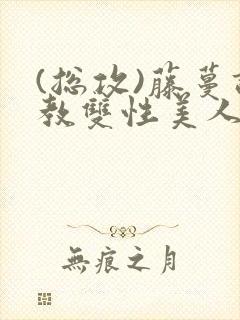 (总攻)藤蔓
教雙性美人
無痕之月